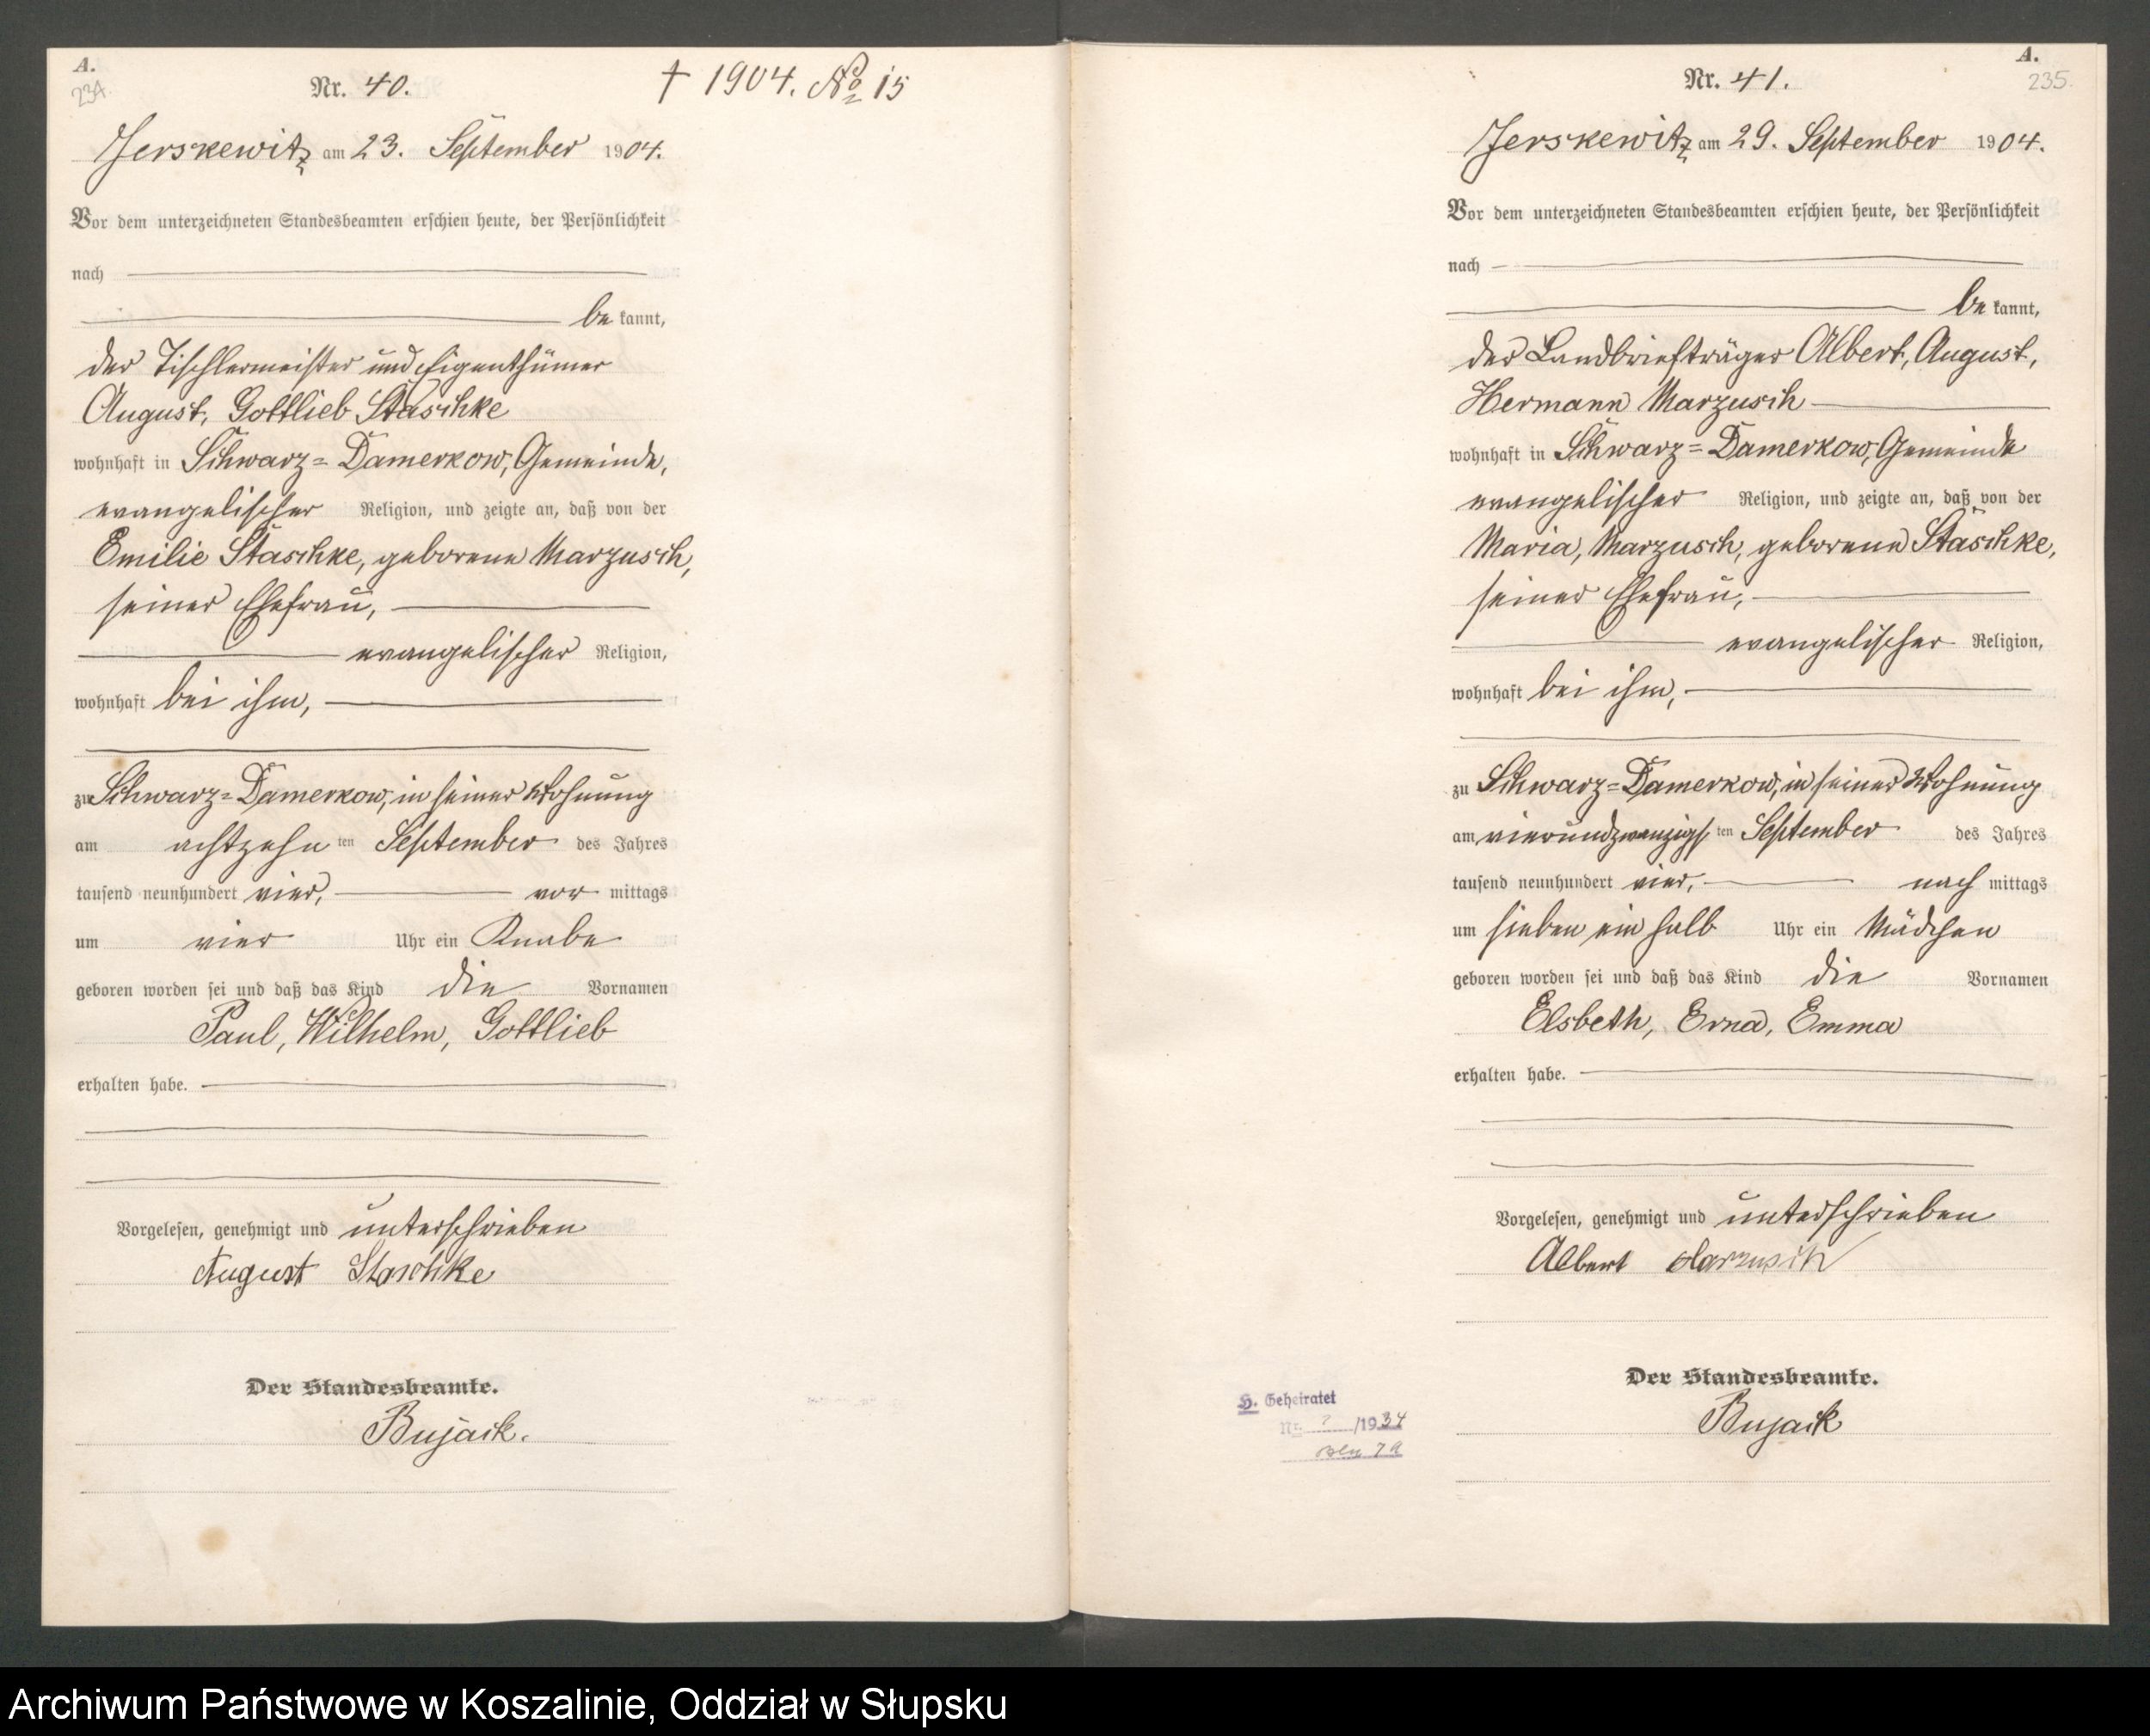 A.
234.
Nr. 40.
† 1904. No 15
Jerskewitz am 23. September 1904.
Vor dem unterzeichneten Standesbeamten erschien heute, der Persönlichkeit
nach
be kannt,
der Tischlermeister und Eigenthümer
August, Gottlieb Staschke
wohnhaft in Schwarz=Damerkow, Gemeinde,
evangelischer Religion, und zeigte an, daß von der
Emilie Staschke, geborene Marzusch,
seiner Ehefrau,
evangelischer Religion,
wohnhaft bei ihm,
zu Schwarz=Damerkow, in seiner Wohnung
am achtzehn ten September des Jahres
tausend neunhundert vier, vor mittags
um vier Uhr ein Knabe
geboren worden sei und daß das Kind die Vornamen
Paul, Wilhelm, Gottlieb
erhalten habe.
Vorgelesen, genehmigt und unterschrieben
August Staschke
Der Standesbeamte.
Bujack.
A.
235.
Nr. 41.
Jerskewitz am 29. September 1904.
Vor dem unterzeichneten Standesbeamten erschien heute, der Persönlichkeit
nach
be kannt,
der Landbriefträger Albert, August,
Hermann Marzusch
wohnhaft in Schwarz=Damerkow, Gemeinde
evangelischer Religion, und zeigte an, daß von der
Maria, Marzusch, geborene Staschke,
seiner Ehefrau,
evangelischer Religion,
wohnhaft bei ihm,
zu Schwarz=Damerkow, in seiner Wohnung
am vierundzwanzigs ten September des Jahres
tausend neunhundert vier, nach mittags
um sieben ein halb Uhr ein Mädchen
geboren worden sei und daß das Kind die Vornamen
Elsbeth, Erna, Emma
erhalten habe.
Vorgelesen, genehmigt und unterschrieben
Albert Marzusch
Der Standesbeamte.
Bujack
H. Geheiratet
Nr. /1934
Archiwum Państwowe w Koszalinie, Oddział w Słupsku